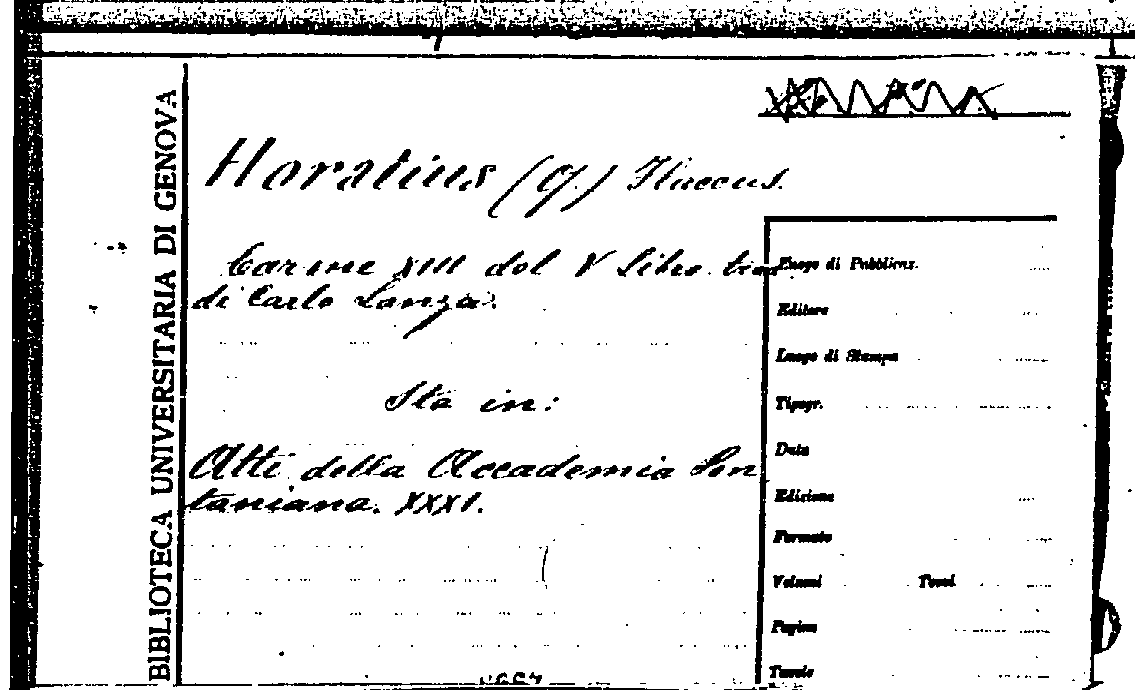 BIBLIOTECA UNIVERSITARIA DI GENOVA
Horatius (Q.) Flaccus.
Carme XIII del V libro
di Carlo Lanza.
Sta in:
Atti della Accademia Pon
taniana. XXXI.
Luogo di Pubblicaz.
Editore
Luogo di Stampa
Tipogr.
Data
Edizione
Formato
Volumi Tomi
Pagine
Tavole